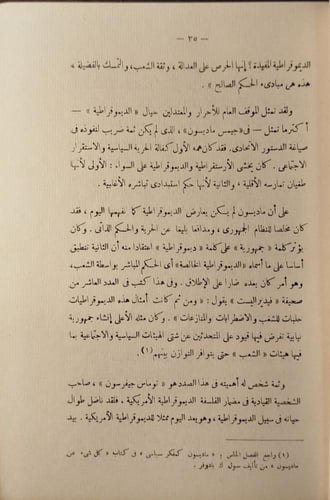 — ٢٥ —
الديموقراطية المقيدة ؟ إنها الحرص على العدالة ، وثقة الشعب ، والتمسك بالفضيلة .
هذه هى مبادىء الحكم الصالح » .
ولقد تمثل الموقف العام للأحرار والمعتدلين حيال « الديموقراطية » —
أكثر ما تمثل — فى « جيمس ماديسون » ، الذى لم يكن ثمة ضريب لنفوذه فى
صياغة الدستور الاتحادى . فقد كان همه الأول كفالة الحرية السياسية والاستقرار
الاجتماعى . كان يخشى الأرستقراطية والديموقراطية على السواء : الأولى لأنها
طغيان تمارسه الأقلية ، والثانية لأنها حكم استبدادى تباشره الأغلبية .
على أن ماديسون لم يكن يعارض الديموقراطية كما نفهمها اليوم ، فقد
كان مخلصا للنظام الجمهورى ، ومدافعا بليغا عن الحرية والحكم الذاتى . وكان
يؤثر كلمة « جمهورية » على كلمة « ديموقراطية » اعتقادا منه أن الثانية تنطبق
أساسا على ما أسماه « الديموقراطية الخالصة » أى الحكم المباشر بواسطة الشعب ،
وهو أمر كان يعده ضارا على الإطلاق . وفى هذا كتب فى العدد العاشر من
صحيفة « فيدراليست » يقول : « ومن ثم كانت أمثال هذه الديموقراطيات
حلبات للشعب والاضطرابات والمنازعات » . وكان مثله الأعلى إنشاء جمهورية
نيابية تفرض فيها قيود على المتحدثين عن شتى الهيئات السياسية والاجتماعية بما
فيها هيئات « الشعب » حتى يتوافر التوازن بينهم (١) .
وثمة شخص له أهميته فى هذا الصدد هو « توماس جيفرسون » ، صاحب
الشخصية القيادية فى مضمار الفلسفة الديموقراطية الأمريكية . فلقد ناضل طوال
حياته فى سبيل الديموقراطية ، وهو يعد اليوم ممثلا للديموقراطية الأمريكية . بيد
(١) راجع الفصل الخامس : « ماديسون كمفكر سياسى » فى كتاب « كل شىء عن
ماديسون » من تأليف سول ك بادوفر .